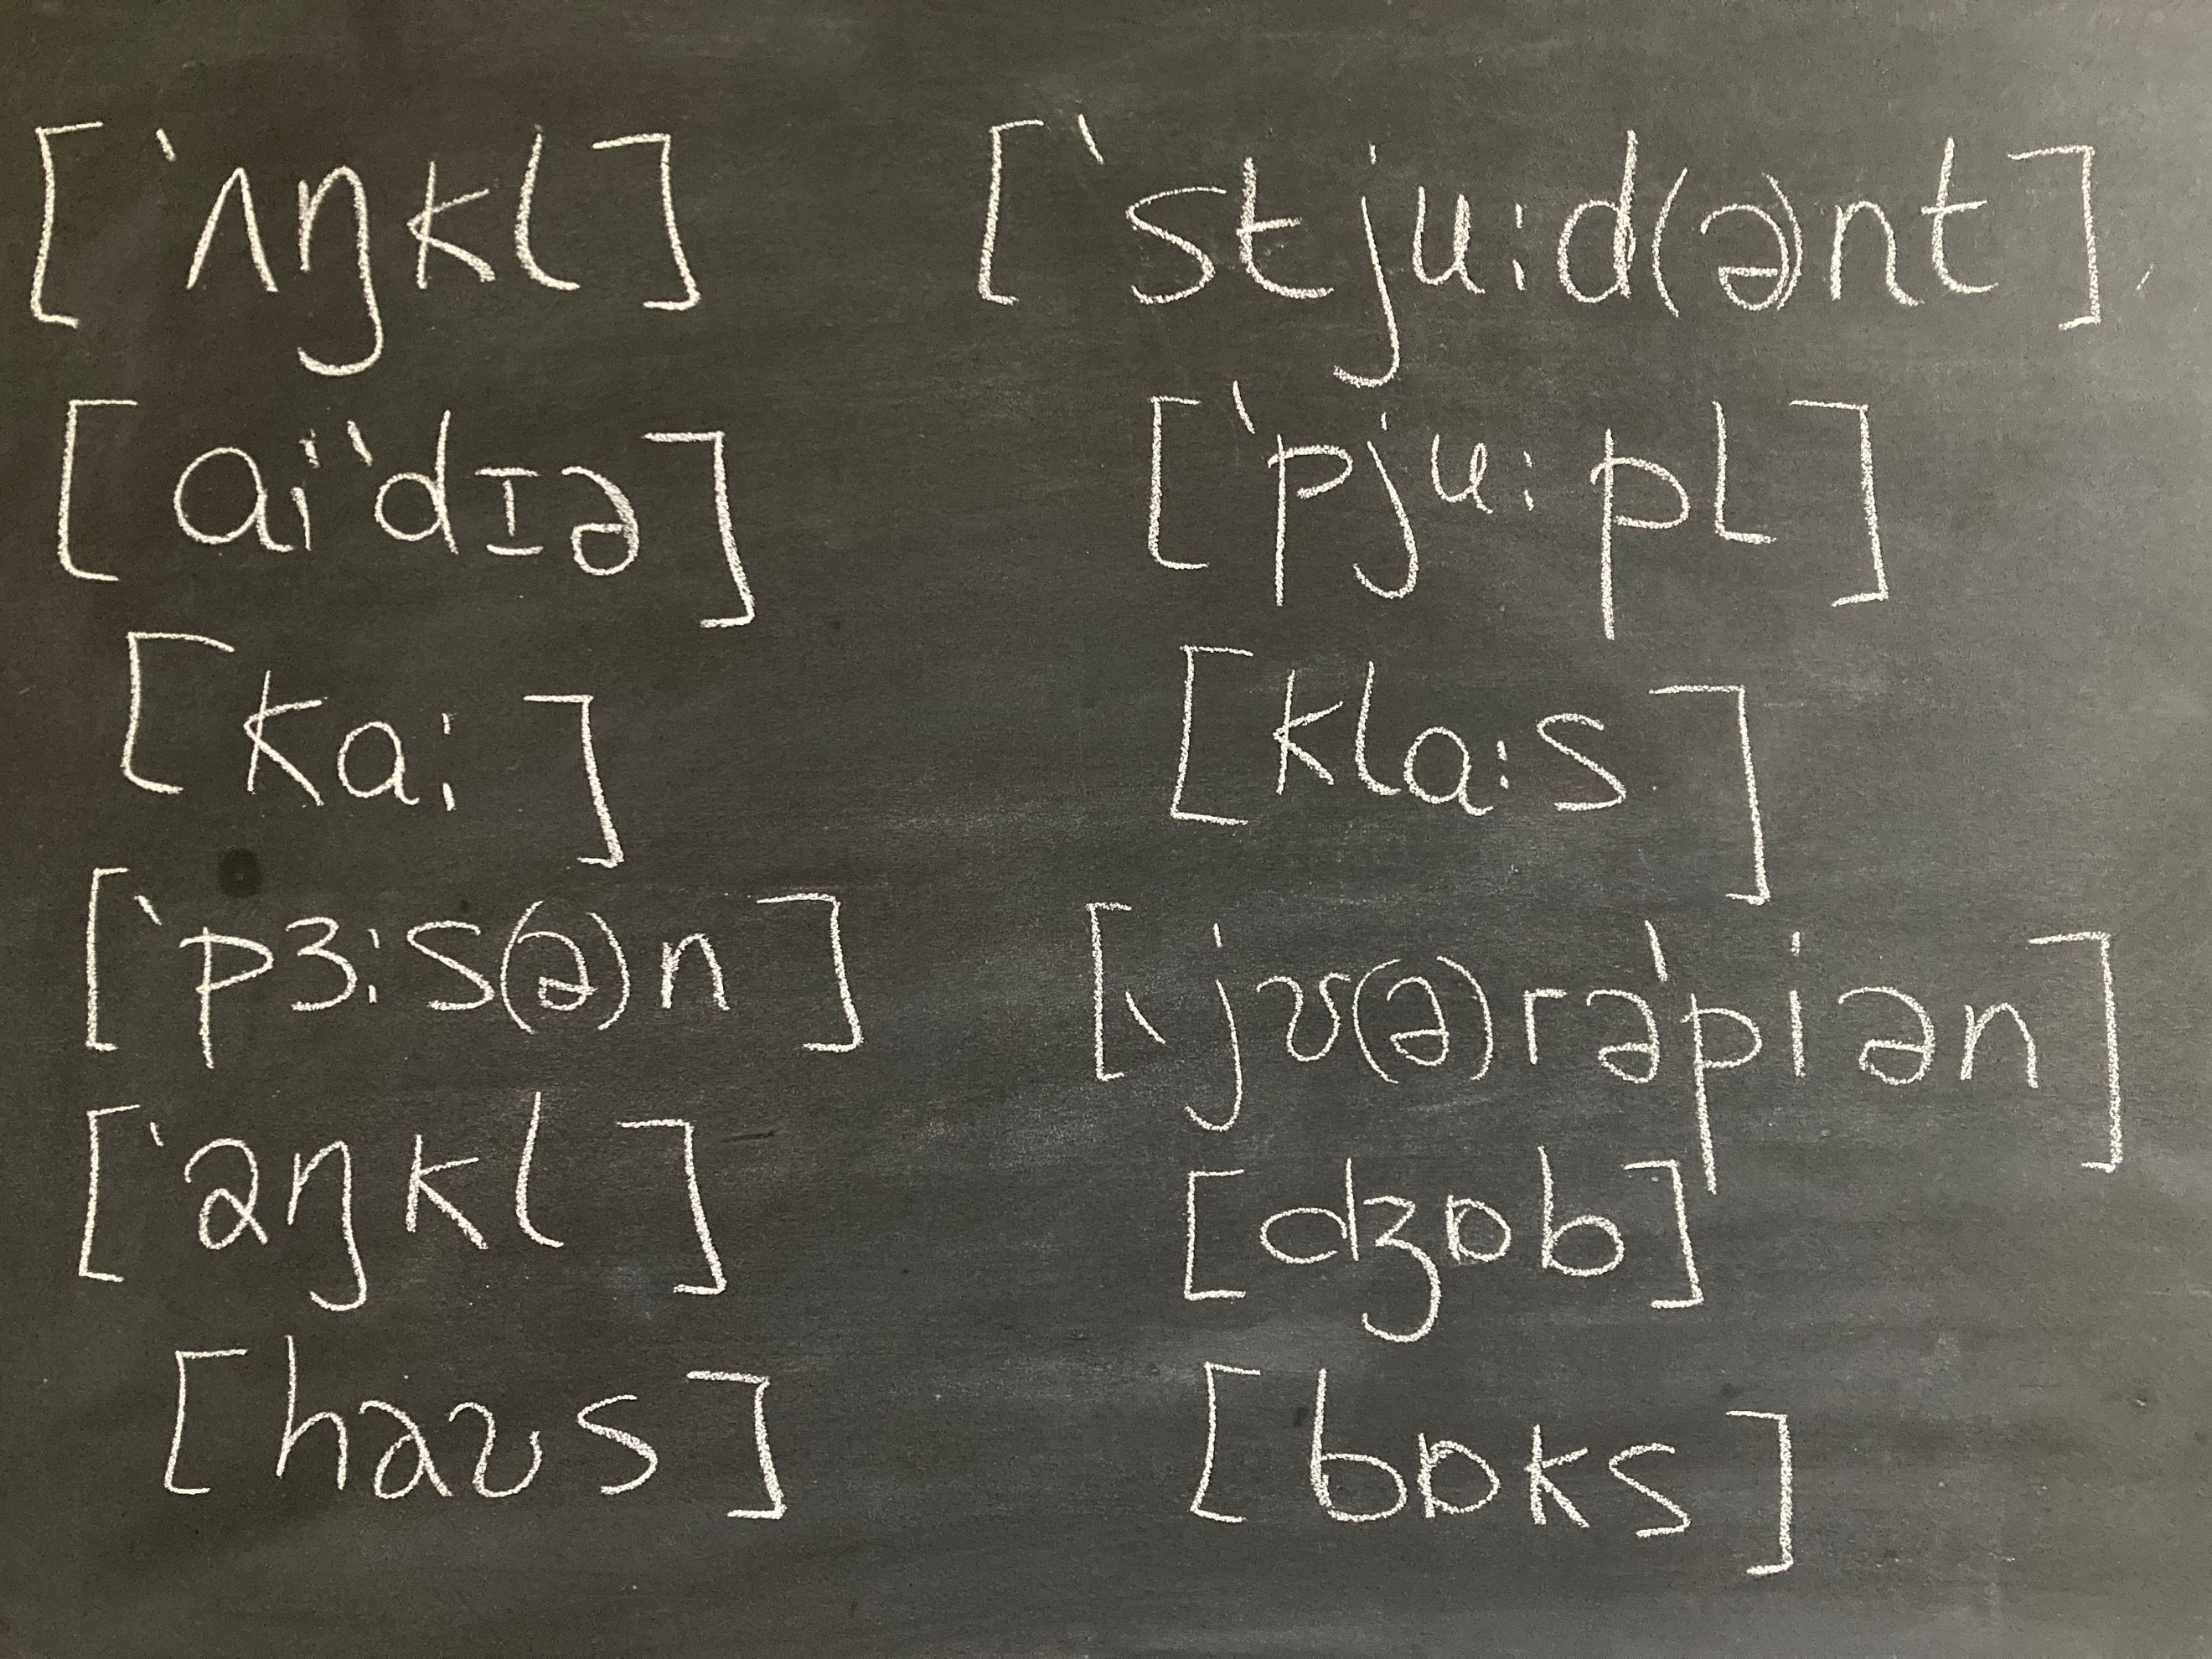 [ˈʌŋkl]
[aiˈdɪə]
[ka:]
[ˈpɜ:s(ə)n]
[ˈəŋkl]
[həʊs]
[ˈstju:d(ə)nt]
[ˈpju:pl]
[kla:s]
[ˌjʊ(ə)rəˈpiən]
[dʒɒb]
[bɒks]